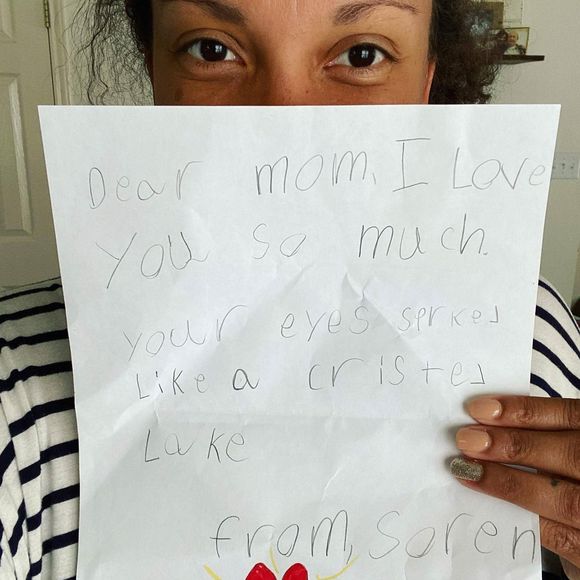 Dear mom, I Love
You so much.
your eyes serkeJ
Like a cristeJ
Lake
from, Soren